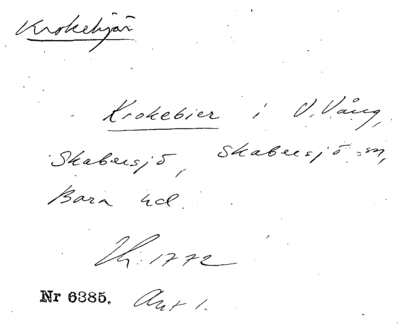 Krokebjär
Krokebier i V. Vång,
Skabersjö, Skabersjö sn,
Bara hd.
1772
Nr 6385. Akt 1.